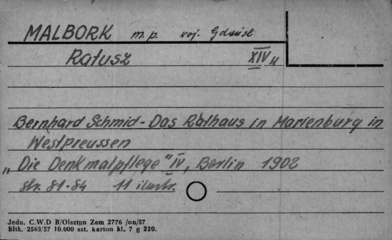 MALBORK m.p. woj. Gdańsk
Ratusz XIV w
Bernhard Schmid - Das Rathaus in Marienburg in
Westpreussen
„Die Denkmalpflege" IV, Berlin 1902
str. 81-84 11 ilustr.
Jedn. C.W.D B/Olsztun Zam 2776 /on/57
Bltk. 2563/57 10.000 szt. karton kl. 7 g 220.